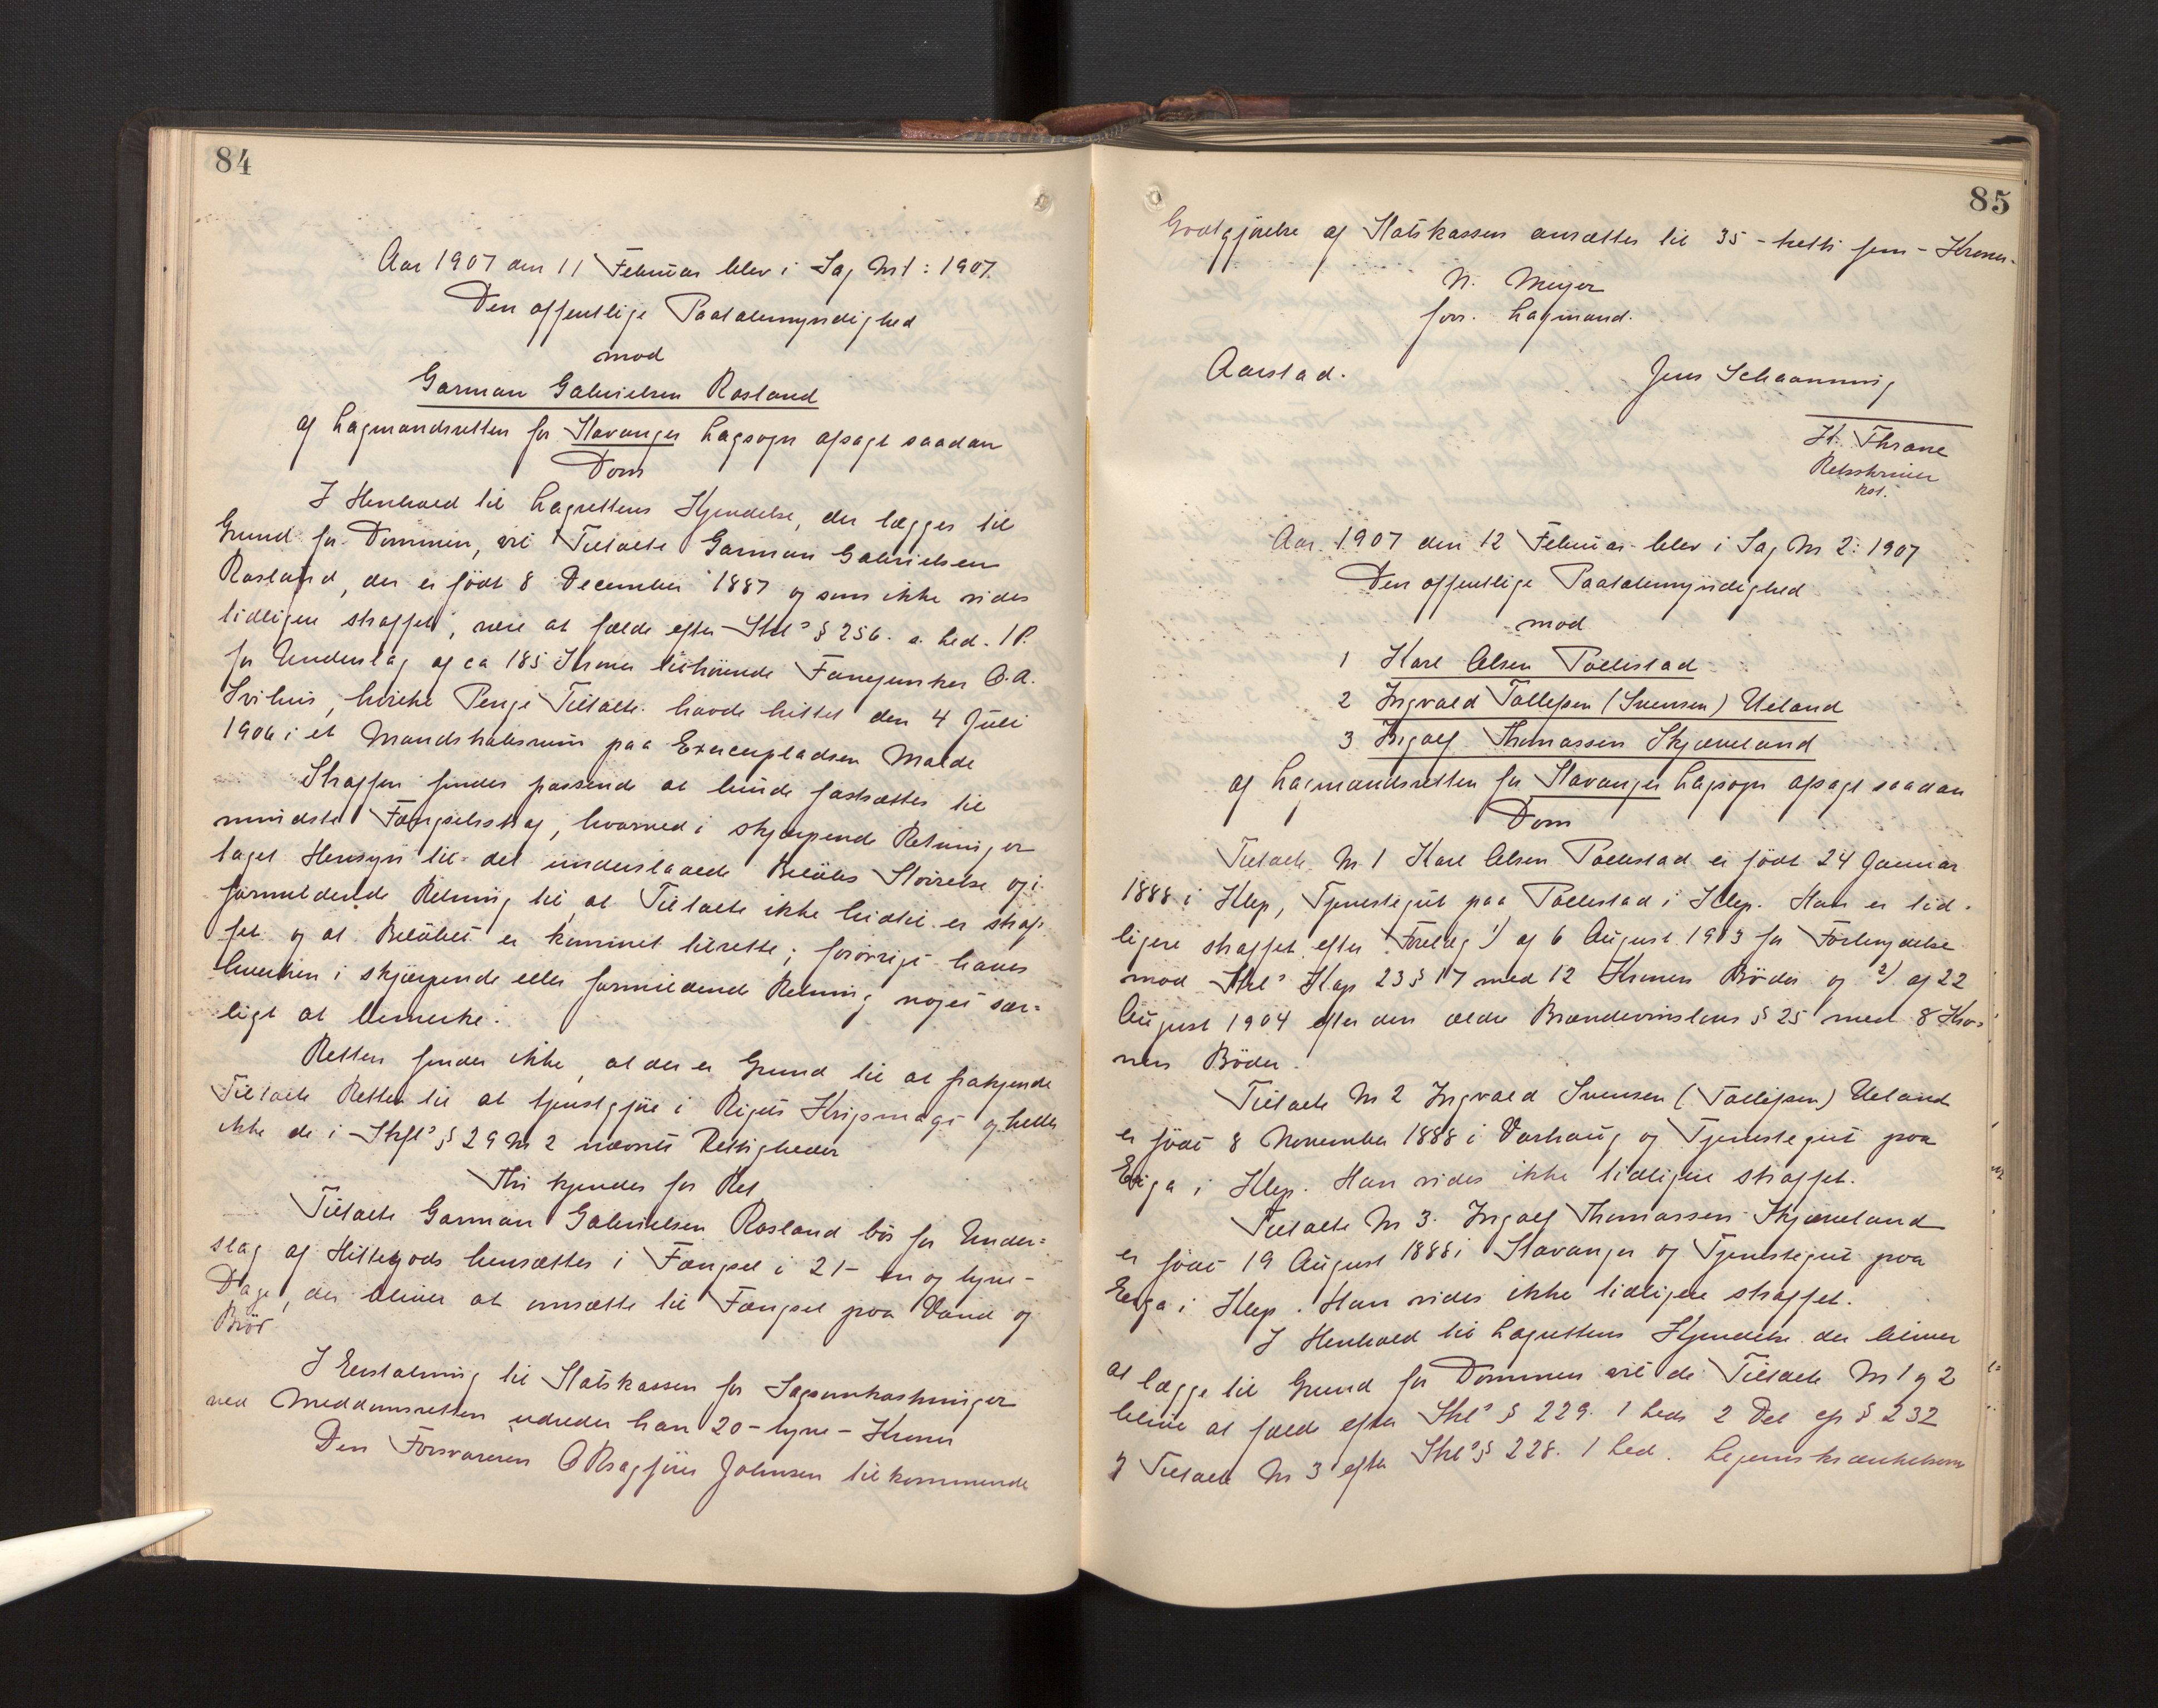 84
Aar 1907 den 11 Februar blev i Sag No 1: 1907
Den offentlige Paatalemyndighed
mod
Garman Gabrielsen Rosland
af Lagmandsretten for Stavanger Lagsogn afsagt saadan
Dom
I Henhold til Lagrettens Kjendelse, der lægges til
Grund for Dommen, vil Tiltalte Garman Gabrielsen
Rosland, der er født 8 December 1887 og som ikke vides
tidligere straffet, være at fælde efter Strl's § 256. a. Led. 1 P.
for Underslag af ca 185 Kroner tilhørende Fanejunker O. A.
Svihus, hvilke Penge Tiltalte havde hittet den 4 Juli
1906 i et Mandskabsrum paa Exercerpladsen Malde
Straffen findes passende at burde fastsættes til
mindste Fængselsstraf, hvorved i skjærpende Retning er
taget Hensyn til det underslaaede Beløbs Størrelse og i
formildende Retning til, at Tiltalte ikke hidtil er straf-
fet og at Beløbet er kommet tilrette; forøvrigt haves
hverken i skjærpende eller formildende Retning noget sær-
ligt at bemerke.
Retten finder ikke, at der er Grund til at frakjende
Tiltalte Retten til at tjenstgjøre i Rigets Krigsmagt og heller
ikke de i Strfl's § 29 No 2 nævnte Rettigheder
Thi kjendes for Ret
Tiltalte Garman Gabrielsen Rosland bør for Under-
slag af Hittegods hensættes i Fængsel i 21 - en og tyve -
Dage, der bliver at omsætte til Fængsel paa Vand og
Brød
I Erstatning til Statskassen for Sagsomkostninger
ved Meddomsretten udreder han 20 - tyve - Kroner
Den Forsvareren O Rsagfører Johnsen tilkommende
85
Godtgjørelse af Statskassen ansættes til 35 - tretti fem - Kroner.
N. Meyer
forr. Lagmand.
Aarstad.
Jens Schaanning
Kr. Thrane
Retsskriver
kst.
Aar 1907 den 12 Februar blev i Sag No 2: 1907
Den offentlige Paatalemyndighed
mod
1 Karl Olsen Pollestad
2 Ingvald Tollefsen (Svensen) Ueland
3 Ingolf Thomassen Skjæveland
af Lagmandsretten for Stavanger Lagsogn afsagt saadan
Dom
Tiltalte No 1 Karl Olsen Pollestad er født 24 Januar
1888 i Klep, Tjenestegut paa Pollestad i Klep. Han er tid-
ligere straffet efter Forelæg 1) af 6 August 1903 for Forbrydelse
mod Strl's Kap 23 § 17 med 12 Kroners Bøder og 2) af 22
August 1904 efter den ældre Brændevinslovs § 25 med 8 Kro-
ners Bøder.
Tiltalte No 2 Ingvald Svensen (Tollefsen) Ueland
er født 8 November 1888 i Varhaug og Tjenestegut paa
Erga i Klep. Han vides ikke tidligere straffet.
Tiltalte No 3. Ingolf Thomassen Skjæveland
er født 19 August 1888 i Stavanger og Tjenestegut paa
Erga i Klep. Han vides ikke tidligere straffet.
I Henhold til Lagrettens Kjendelse der bliver
at lægge til Grund for Dommen vil de Tiltalte No 1 og 2
blive at fælde efter Strl's § 229. 1 Led 2 Del cfr § 232
og Tiltalte No 3 efter Strl's § 228. 1 Led. Legemskrænkelsen